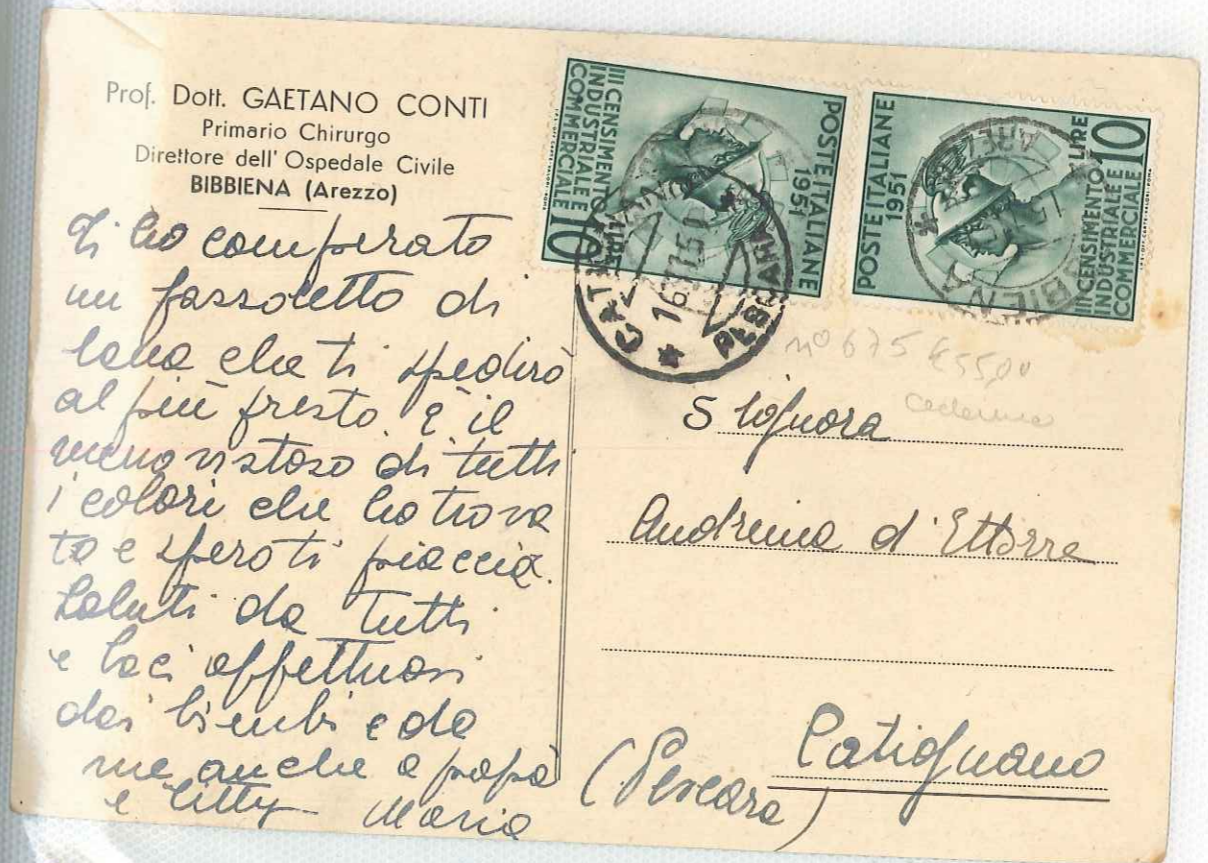 Prof. Dott. GAETANO CONTI
Primario Chirurgo
Direttore dell' Ospedale Civile
BIBBIENA (Arezzo)
Ti ho comperato
un fazzoletto di
lana che ti spedirò
al più presto. è il
meno vistoso di tutti
i colori che ho trova
to e spero ti piaccia.
Saluti da tutti
e baci affettuosi
dai bimbi e da
me anche a papà
e Titty Maria
III CENSIMENTO
INDUSTRIALE E
COMMERCIALE
LIRE 10
POSTE ITALIANE
1951
POSTE ITALIANE
1951
III CENSIMENTO
INDUSTRIALE E
COMMERCIALE
LIRE 10
CATIGNANO
PESCARA
BIBBIENA
AREZZO
n° 675 €55,00
Signora
Andreina d'Ettorre
Catignano
(Pescara)